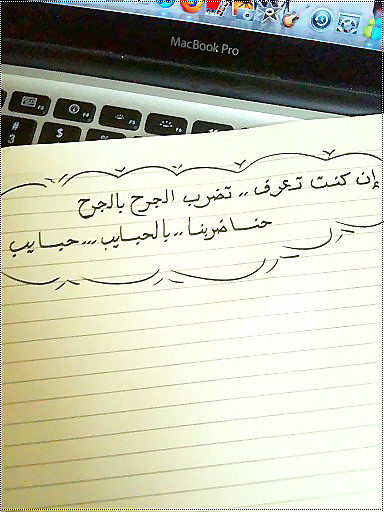 MacBook Pro
#
3
$
إن كنت تعرف .. تضرب الجرح بالجرح
حنا ضربنا .. بالحبايب ... حبايب